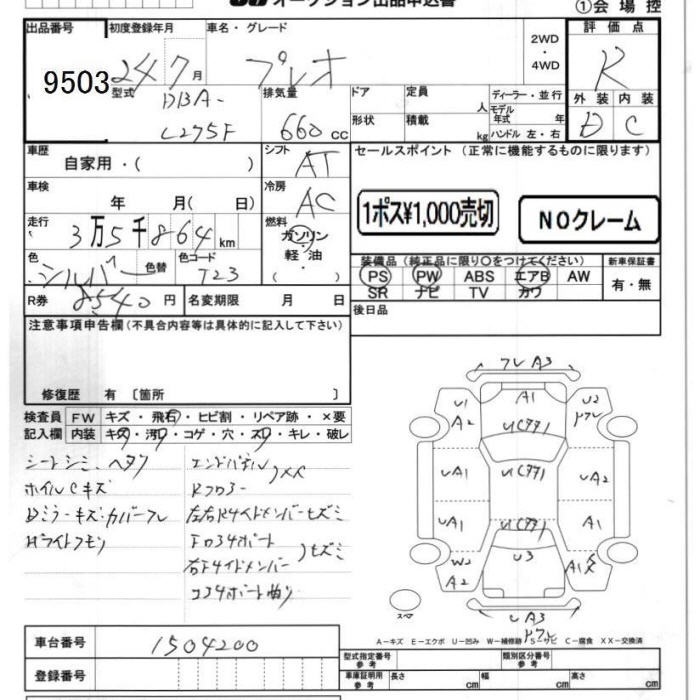 オークション出品申込書
①会場控
出品番号
9503
初度登録年月
24 7月
車名・グレード
プレオ
2WD
・
4WD
評価点
R
外装 内装
D C
型式
DBA-
L275F
排気量
660 cc
ドア
形状
定員
人
積載
kg
ディーラー・並行
モデル年式 年
ハンドル 左・右
車歴
自家用・( )
シフト
AT
セールスポイント(正常に機能するものに限ります)
車検
年 月( 日)
冷房
AC
1ポス¥1,000売切
NOクレーム
走行
3万5千864 km
燃料
ガソリン
・
軽・油
色
シルバー
色替
色コード
T23
装備品(純正品に限り○をつけてください)
PS PW ABS エアB AW
SR ナビ TV カワ
新車保証書
有・無
R券
8540円
名変期限 月 日
後日品
注意事項申告欄(不具合内容等は具体的に記入して下さい)
修復歴 有 〔箇所 〕
検査員
記入欄
FW キズ・飛石・ヒビ割・リペア跡・×要
内装 キズ・汚・コゲ・穴・スレ・キレ・破レ
シートシミ、ヘタリ
ホイルCキズ
Dミラーキズ・カバーワレ
Hライトクモリ
エンドパネル
Rフロアー
XX
左右Rサイドメンバーヒズミ
Fロアサポート
右Fサイドメンバー
ヒズミ
コアサポート曲り
ワレA3
A1
U1
A2
U2
UA1
UA2
UA1
A1
U3
W2
A2
UA3
スペア
A-キズ E-エクボ U-凹み W-補修跡 S-サビ C-腐食 XX-交換済
車台番号
1504200
登録番号
型式指定番号
参考
類別区分番号
参考
車庫証明用
参考
長さ cm 幅 cm 高さ cm